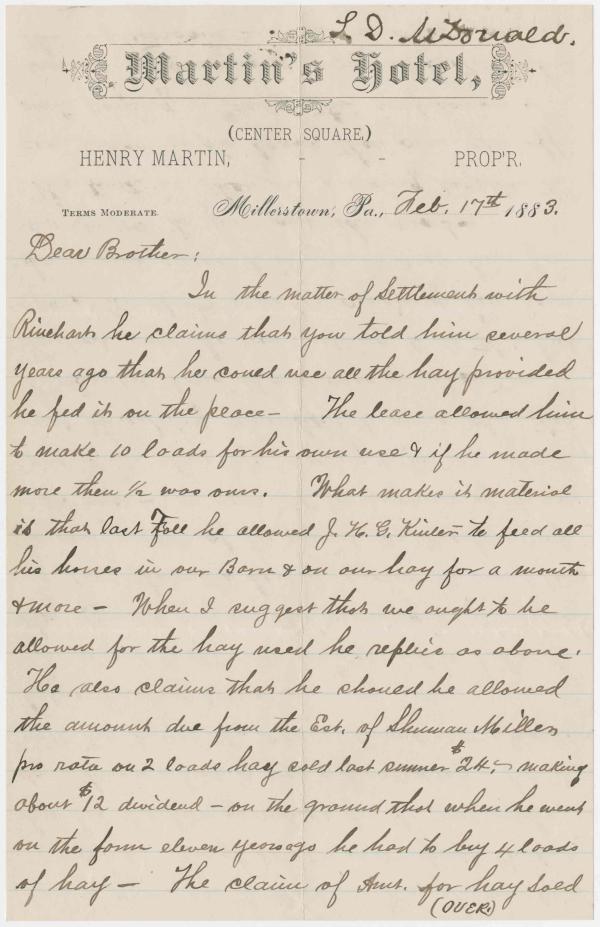 L D. McDonald.
Martin's Hotel,
(CENTER SQUARE.)
HENRY MARTIN, - - PROP'R.
TERMS MODERATE. Millerstown, Pa., Feb. 17th 1883.
Dear Brother;
In the matter of settlement with
Rinehart he claims that you told him several
years ago that he could use all the hay provided
he fed it on the place — The lease allowed him
to make 10 loads for his own use & if he made
more then ½ was ours. What makes it material
is that last Fall he allowed J. H. G. Kinter to feed all
his horses in our Barn & on our hay for a month
& more — When I suggest that we ought to be
allowed for the hay used he replies as above.
He also claims that he should be allowed
the amount due from the Est. of Shuman Miller
pro rata on 2 loads hay sold last summer $24. making
about $12 dividend — on the ground that when he went
on the farm eleven years ago he had to buy 4 loads
of hay — The claim of Amt. for hay sold
(OVER.)